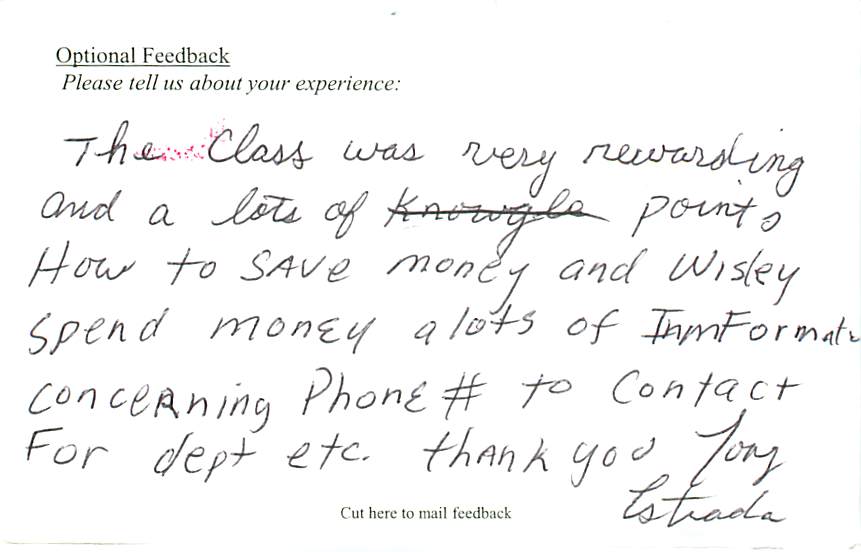 Optional Feedback
Please tell us about your experience:
The Class was very rewarding
and a lots of Knowgle points
How to SAVE money and Wisley
Spend money a lots of InmFormat
concerning Phone # to Contact
For dept etc. thank you Tony
Estrada
Cut here to mail feedback